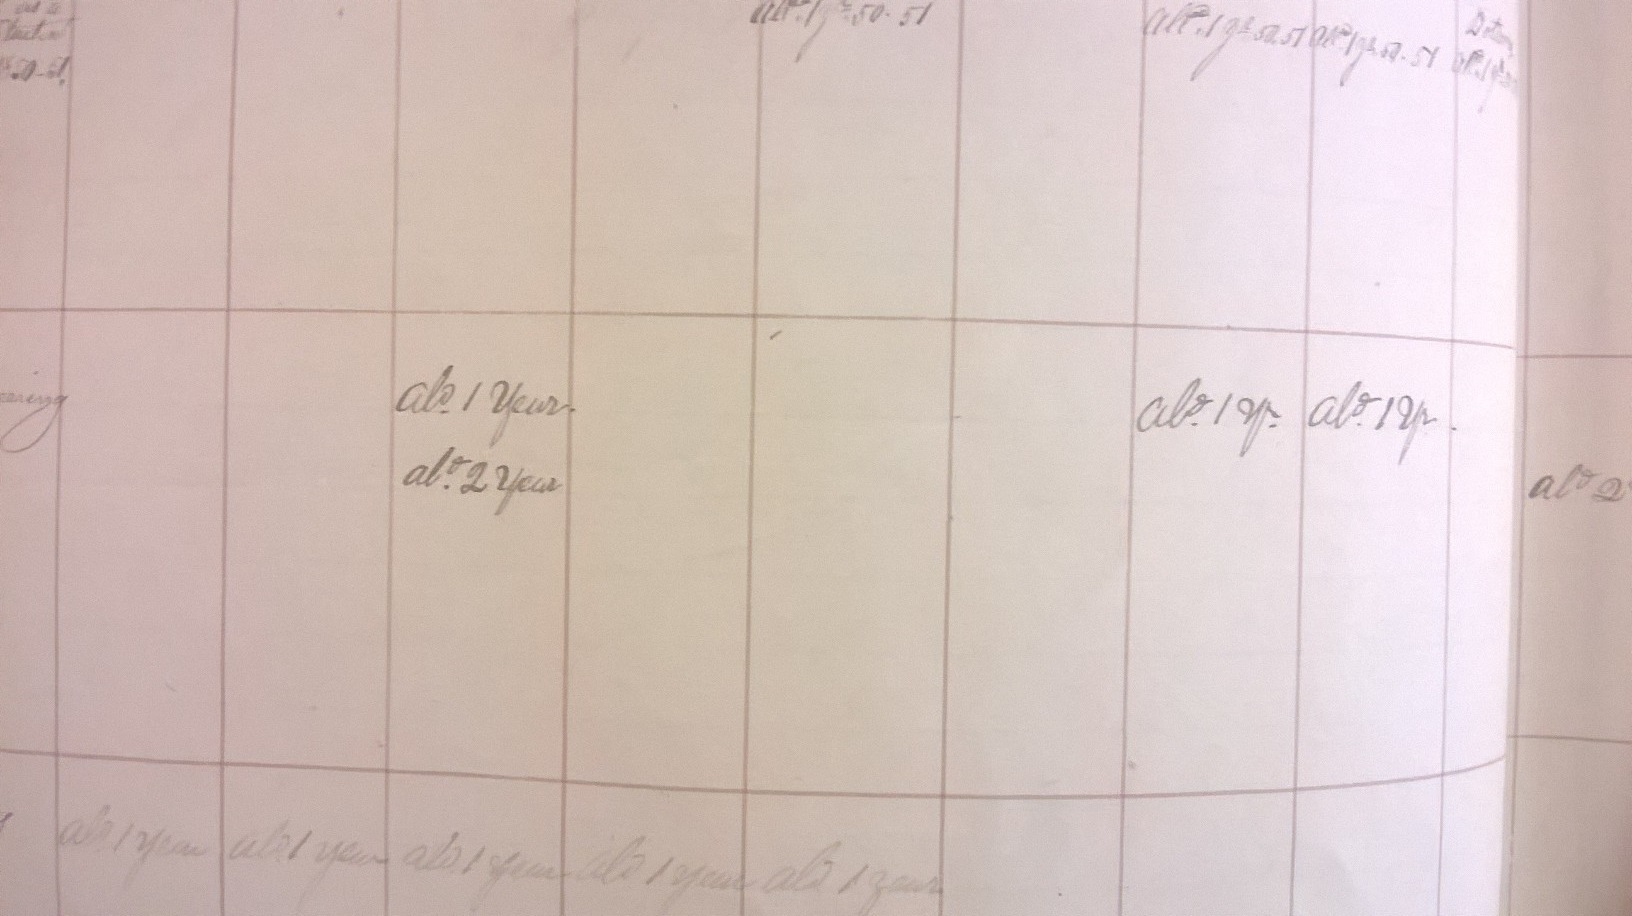 50-51
abt. 1 yr. 50-51
abt. 1 yr. 50.51
abt. 1 yr. 50-51
abt. 1 Year.
abt. 1 yr.
abt. 1 yr.
abt. 2 Year
abt 2
abt 1 year
abt 1 year
abt 1 year
abt 1 year
abt 1 year